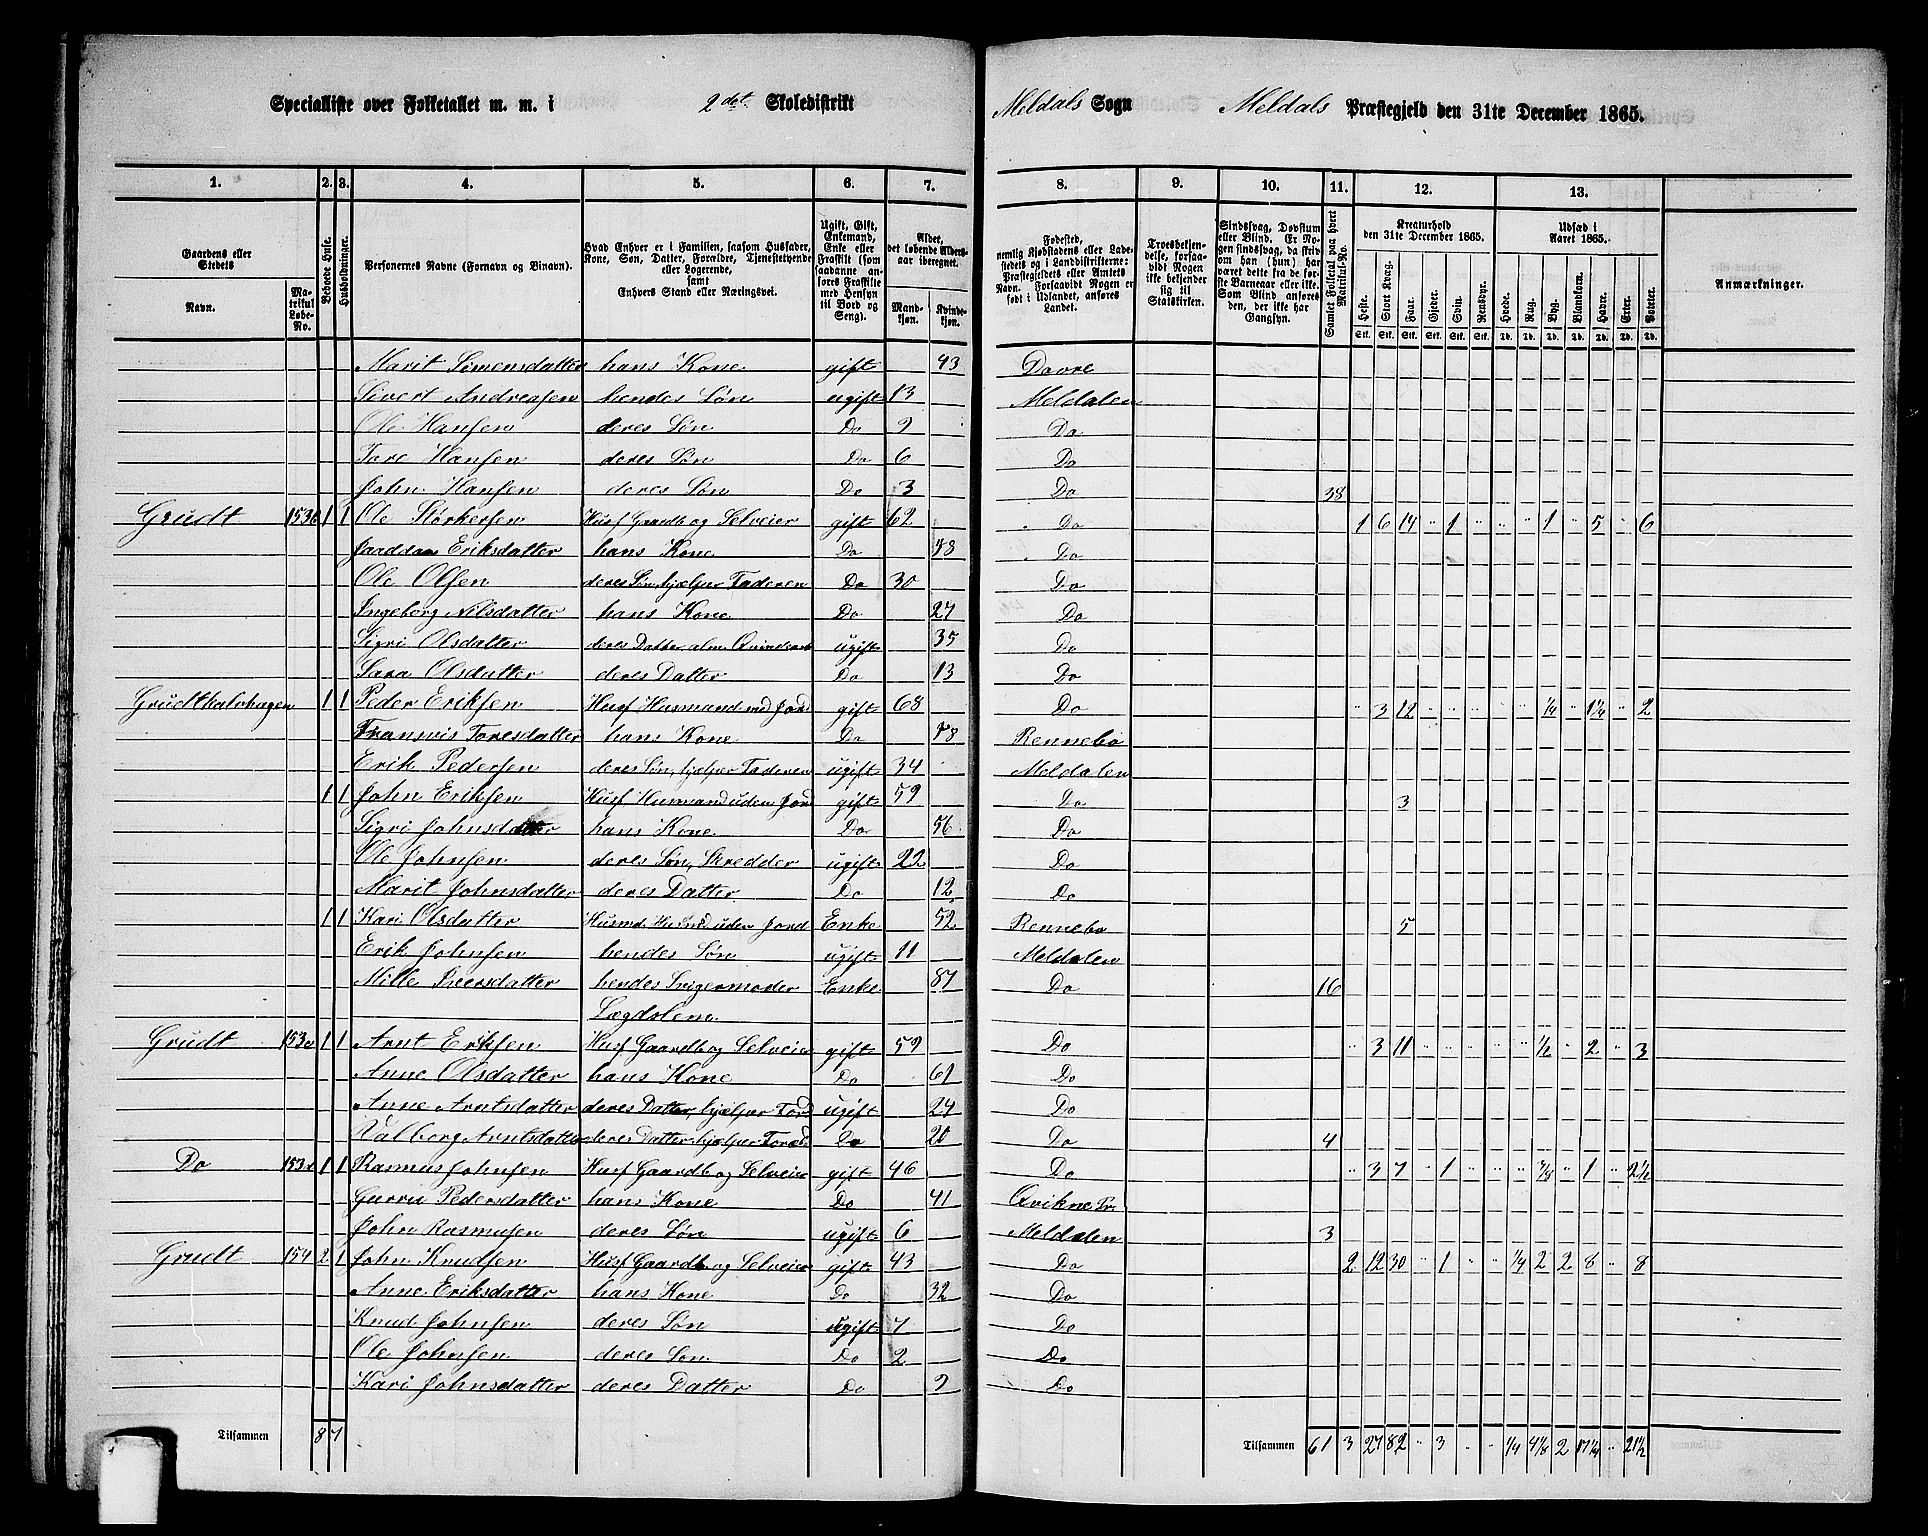 Specialliste over Folketallet m. m. i 2det Skoledistrikt Meldals Sogn Meldals Præstegjeld den 31te December 1865.
1. 2. 3. 4. 5. 6. 7. 8. 9. 10. 11. 12. 13.
Gaardens eller Stedets
Navn.
Matrikul Løbe-No.
Beboede Huse.
Husholdninger.
Personernes Navne (Fornavn og Binavn).
Hvad Enhver er i Familien, saasom Husfader, Kone, Søn, Datter, Forældre, Tjenestetyende eller Logerende, samt Enhvers Stand eller Næringsvei.
Ugift, Gift, Enkemand, Enke eller Fraskilt (som saadanne anføres Fraskilte med Hensyn til Bord og Seng).
Alder, det løbende Aldersaar iberegnet.
Mandkjøn. Kvindekjøn.
Fødested, nemlig Kjøbstadens eller Ladestedets og i Landdistrikterne: Præstegjeldets eller Amtets Navn. Forsaavidt Nogen er født i Udlandet, anføres Landet.
Troesbekjendelse, forsaavidt Nogen ikke bekjender sig til Statskirken.
Sindssvag, Døvstum eller Blind. Er Nogen sindssvag, da skrives om han (hun) har været dette fra de første Barneaar eller ikke. Som Blind anføres den, der ikke har Gangsyn.
Samlet Folketal paa hvert Matrikul-No.
Kreaturhold den 31te December 1865.
Heste. Stort Kvæg. Faar. Gjeder. Svin. Rensdyr.
Udsæd i Aaret 1865.
Hvede. Rug. Byg. Blandkorn. Havre. Erter. Poteter.
Anmærkninger.
Marit Simensdatter hans Kone gift 43 Dovre
Sivert Andreasen hendes Søn ugift 13 Meldalen
Ole Hansen deres Søn Do 9 Do
Tore Hansen deres Søn Do 6 Do
John Hansen deres Søn Do 3 Do 38
Grudt 153b 1 1 Ole Størkersen Husf Gaardb og Selveier gift 62 Do 1 6 14 " 1 " " " 1 " 5 " 6
Eriksdatter hans Kone Do 48 Do
Ole Olsen deres Søn, hjælper Faderen Do 30 Do
Ingeborg Nilsdatter hans Kone Do 27 Do
Sigri Olsdatter deres Datter, alm. ugift 35 Do
Sara Olsdatter deres Datter Do 13 Do
1 1 Peder Eriksen Husf Husmand med Jord gift 68 Do " 3 12 " " " " " 1/4 " 1 1/4 " 2
Toresdatter hans Kone Do 78 Rennebo
Erik Pedersen deres Søn, hjælper Faderen ugift 34 Meldalen
1 1 John Eriksen Husf Husmand uden Jord gift 59 Do 3
Sigri Johnsdatter hans Kone Do 56 Do
Ole Johnsen deres Søn, Skredder ugift 22 Do
Marit Johnsdatter deres Datter Do 12 Do
1 1 Kari Olsdatter uden Jord Enke 52 Rennebo 5
Erik Johnsen hendes Søn ugift 11 Meldalen
Mille Peersdatter hendes Svigermoder Enke 87 Do 16
Lægdslem
Grudt 153c 1 1 Arnt Eriksen Husf Gaardb og Selveier gift 59 Do " 3 11 " " " " " 1/2 " 2 " 3
Anne Olsdatter hans Kone Do 61 Do
Anne Arntsdatter deres Datter, hjælper ugift 24 Do
Valborg Arntsdatter deres Datter hjælper Do 20 Do 4
Do 153d 1 1 Rasmus Johnsen Husf Gaardb og Selveier gift 46 Do " 3 7 " 1 " " " 3/8 " 1 " 2 1/2
Gurru Pedersdatter hans Kone Do 41 Qvikne Pr.
John Rasmusen deres Søn ugift 6 Meldalen 3
Grudt 154 2 1 John Knudsen Husf Gaardb og Selveier gift 43 Do 2 12 30 " 1 " " 1/4 2 2 8 " 8
Anne Eriksdatter hans Kone Do 32 Do
Knud Johnsen deres Søn ugift 7 Do
Ole Johnsen deres Søn Do 2 Do
Kari Johnsdatter deres Datter Do 9 Do
Tilsammen 8 7 Tilsammen 61 3 27 82 " 3 " " 1/4 4 1/8 2 17 1/4 " 21 1/2